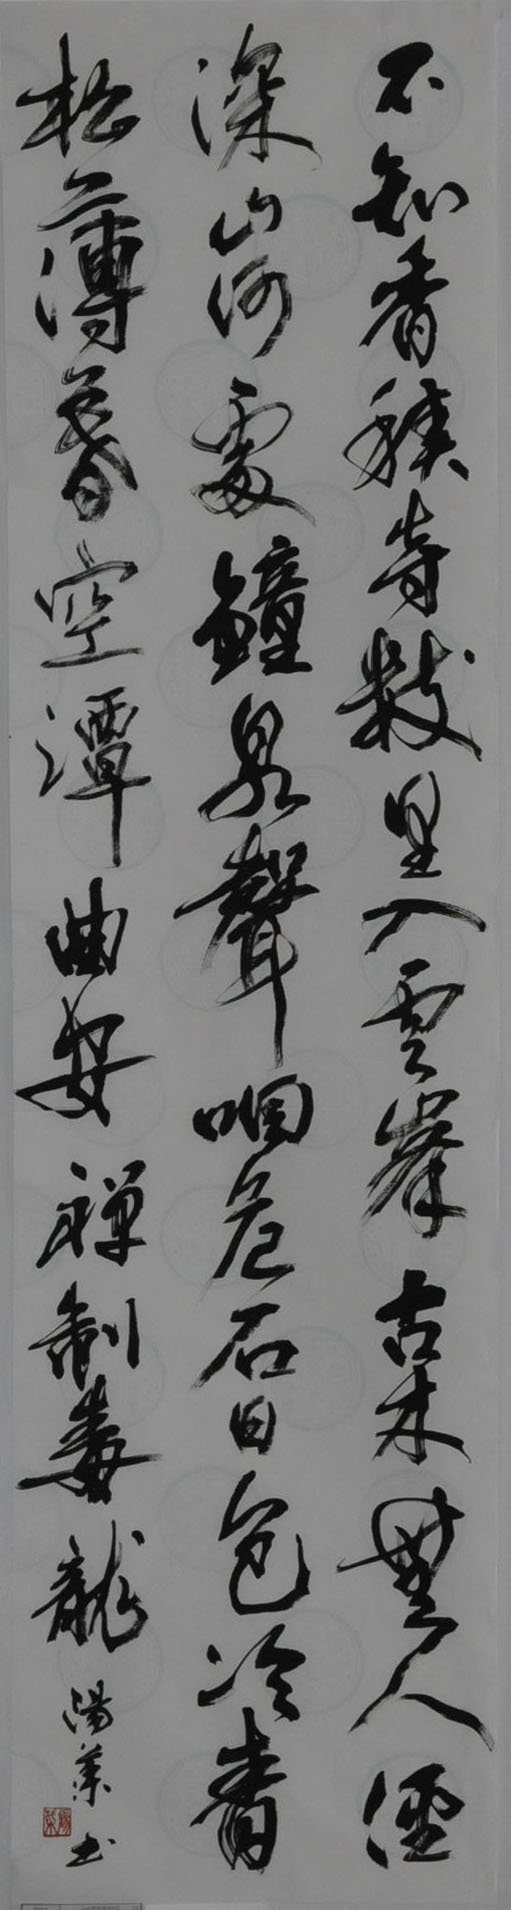 不知香積寺數里入雲峯古木無人徑
深山何處鐘泉聲咽危石日色冷青
松薄暮空潭曲安禪制毒龍
書